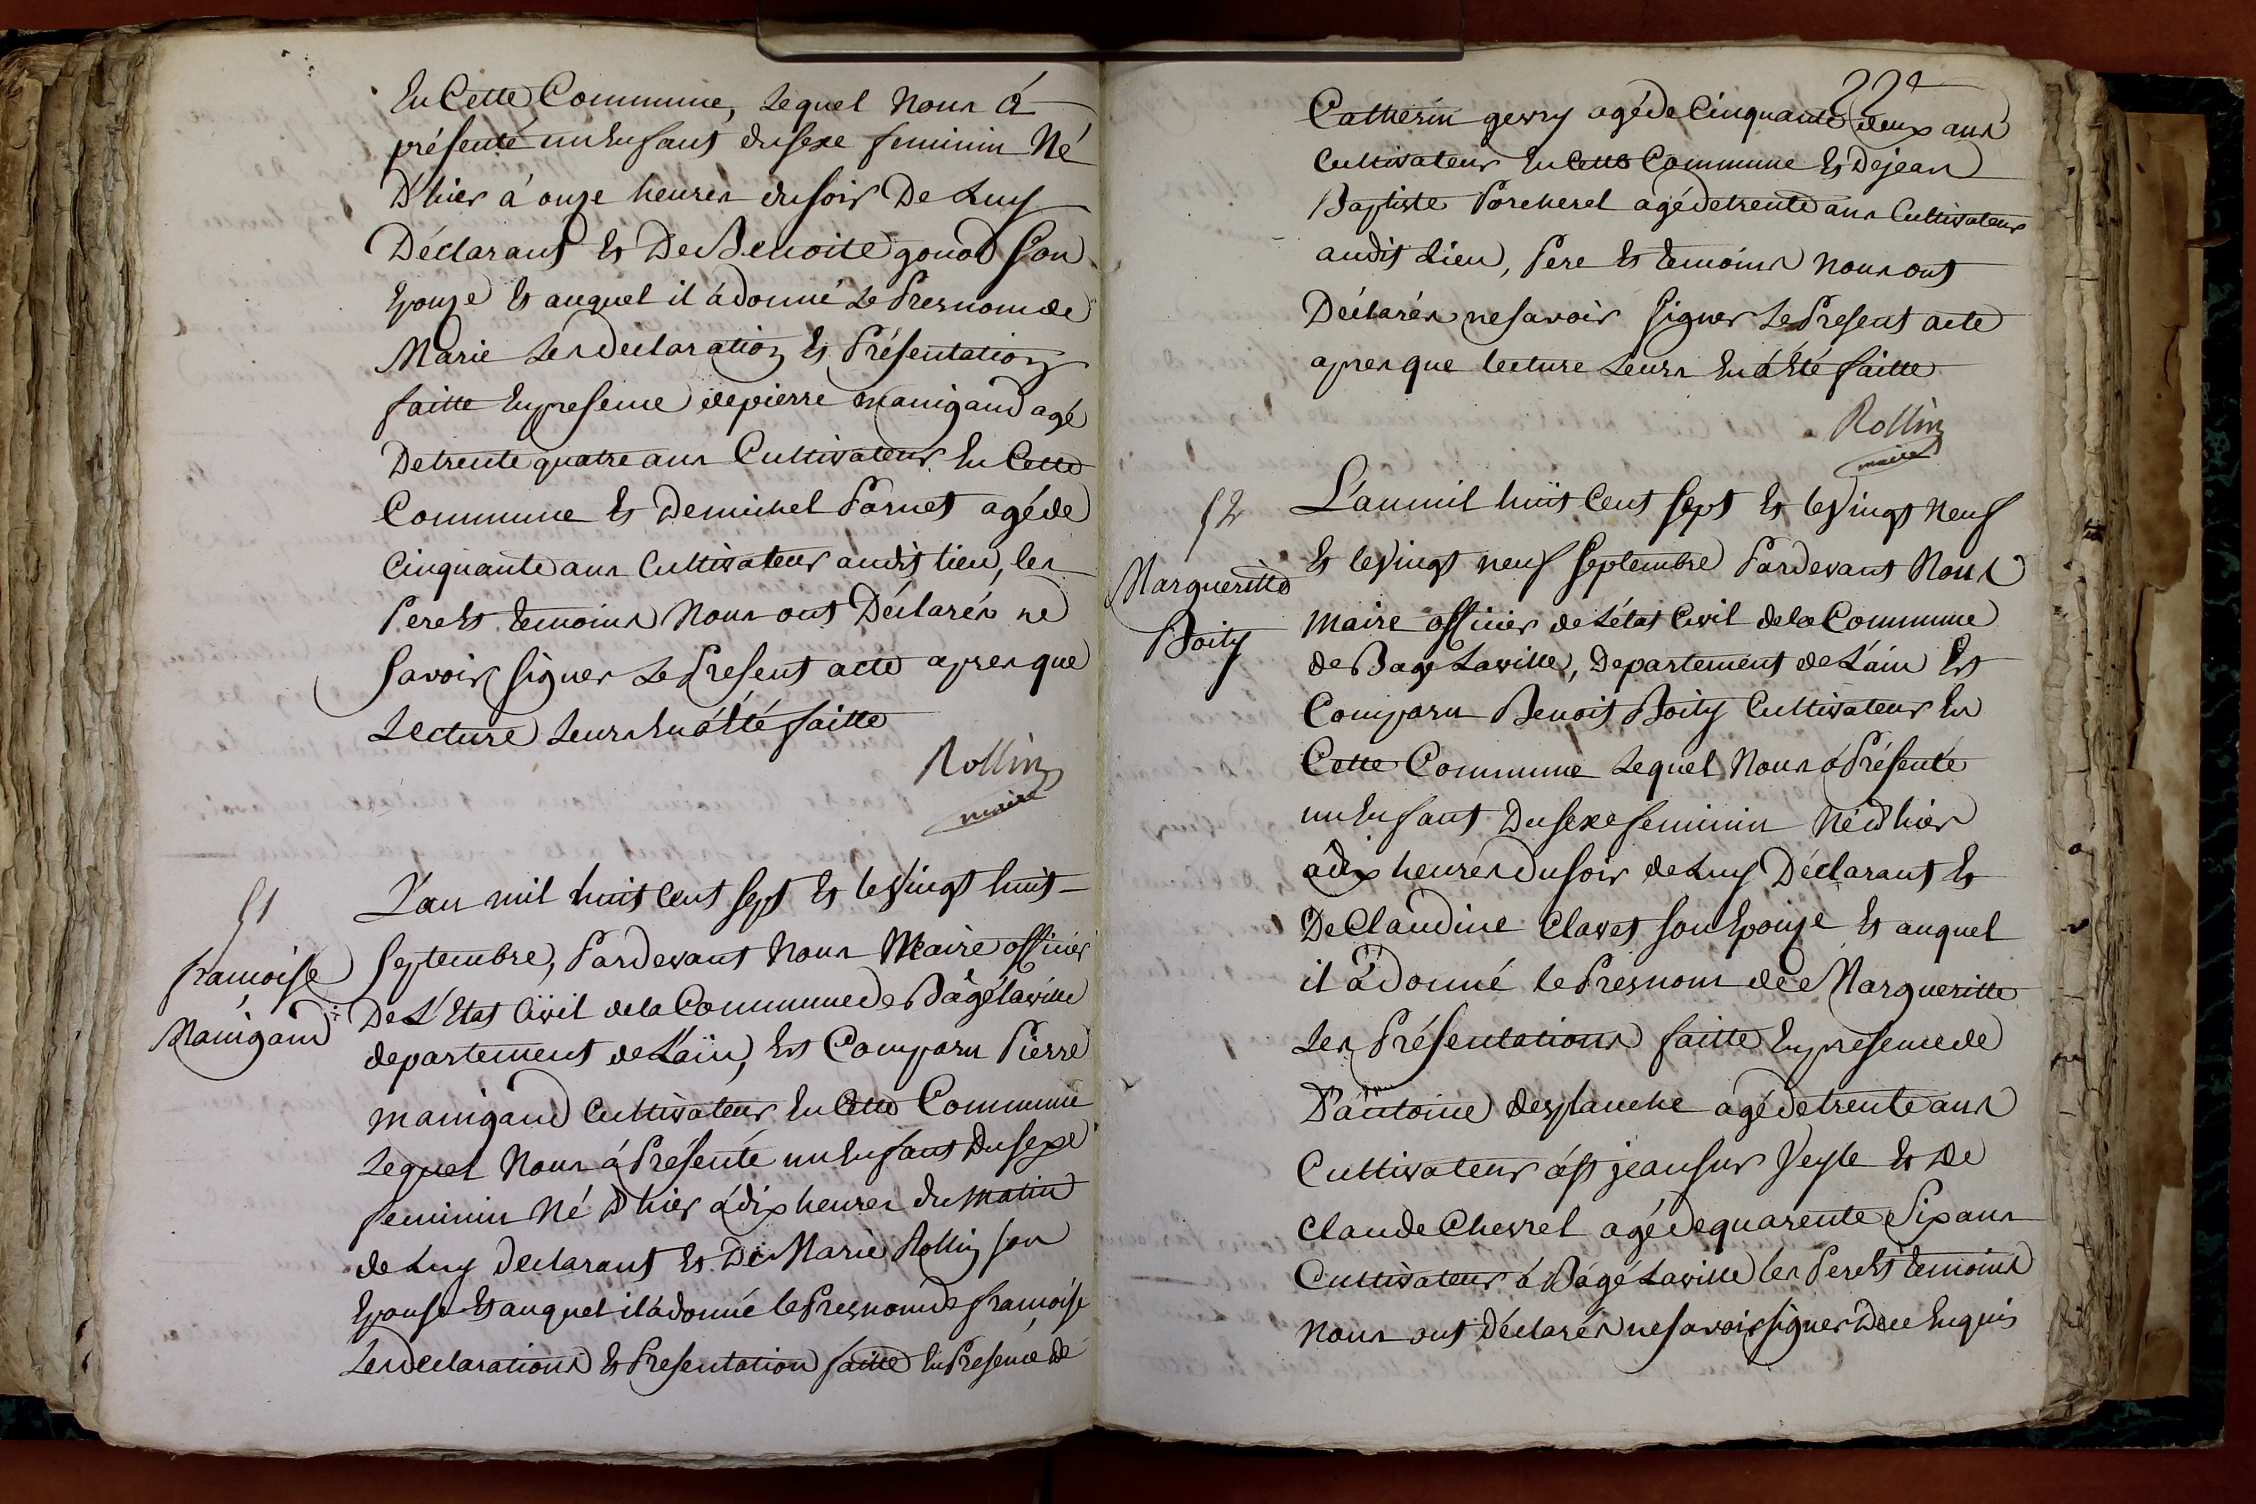 En Cette Commune, Lequel Nous à
présenté un Enfant du sexe feminin Né
D'hier à onze heures du soir De Luy
Déclarant Et De Benoite gonod Son
Epouze Et auquel il à donné Le Presnom de
Marie Les declaration Et Présentation
faitte En presence de pierre manigand agé
De trente quatre ans Cultivateur En Cette
Commune Et De michel Pornet agé de
Cinquante ans Cultivateur audit lieu, les
Pere Et temoins Nous ont Déclarés ne
Savoir Signer Le Present acte apres que
Lecture Leurs En à Eté faitte
Rollin
maire
51
francoise
Manigand
L'an mil huit Cent Sept Et le Vingt huit
Septembre, Pardevant Nous Maire officier
De L'Etat Civil de la Commune de Bâgé laville
departement de L'ain, Est Comparu Pierre
manigand Cultivateur En Cette Commune
Lequel Nous à Présenté un Enfant Du sexe
feminin Né D'hier à dix heures du matin
de Luy declarant Et De Marie Rollin son
Epouse Et auquel il à donné le Presnom de francoise
Les declarations Et Presentation faitte En Presence de
224
Catherin gevry agé de Cinquante deux ans
Cultivateur En Cette Commune Et De jean
Baptiste Porcherel agé de trente ans Cultivateur
audit Lieu, Pere Et temoins Nous ont
Déclarés ne savoir Signer Le Present acte
apres que lecture Leurs En à Eté faitte
Rollin
maire
52
Margueritte
Boity
L'an mil huit Cent Sept Et le Vingt Neuf
Et le Vingt neuf Septembre Pardevant Nous
maire officier de L'état Civil de la Commune
de Bagé Laville, Departement de L'ain Est
Comparu Benoit Boity Cultivateur En
Cette Commune Lequel Nous à Présenté
un Enfant Du sexe feminin Né d'hier
à dix heures Du soir de Luy Déclarant Et
De Claudine Clavet son Epouze Et auquel
il à Donné le Presnom de Margueritte
Les Présentations faitte En presence de
D'antoine desplanche agé de trente ans
Cultivateur à st jean sur Veyle Et De
Claude Chevrel agé de quarente Six ans
Cultivateur à Bâgé Laville les Pere Et temoins
Nous ont Déclarés ne savoir signer De ce Enquis